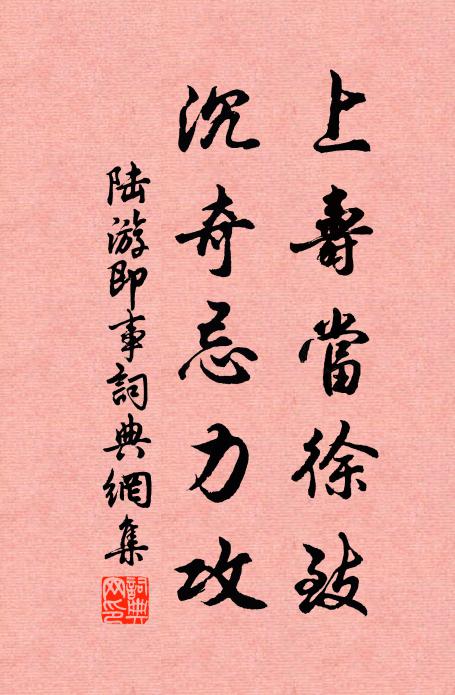 上壽當徐致
沉奇忌力攻
陆游即事詞典網集
詞典网印